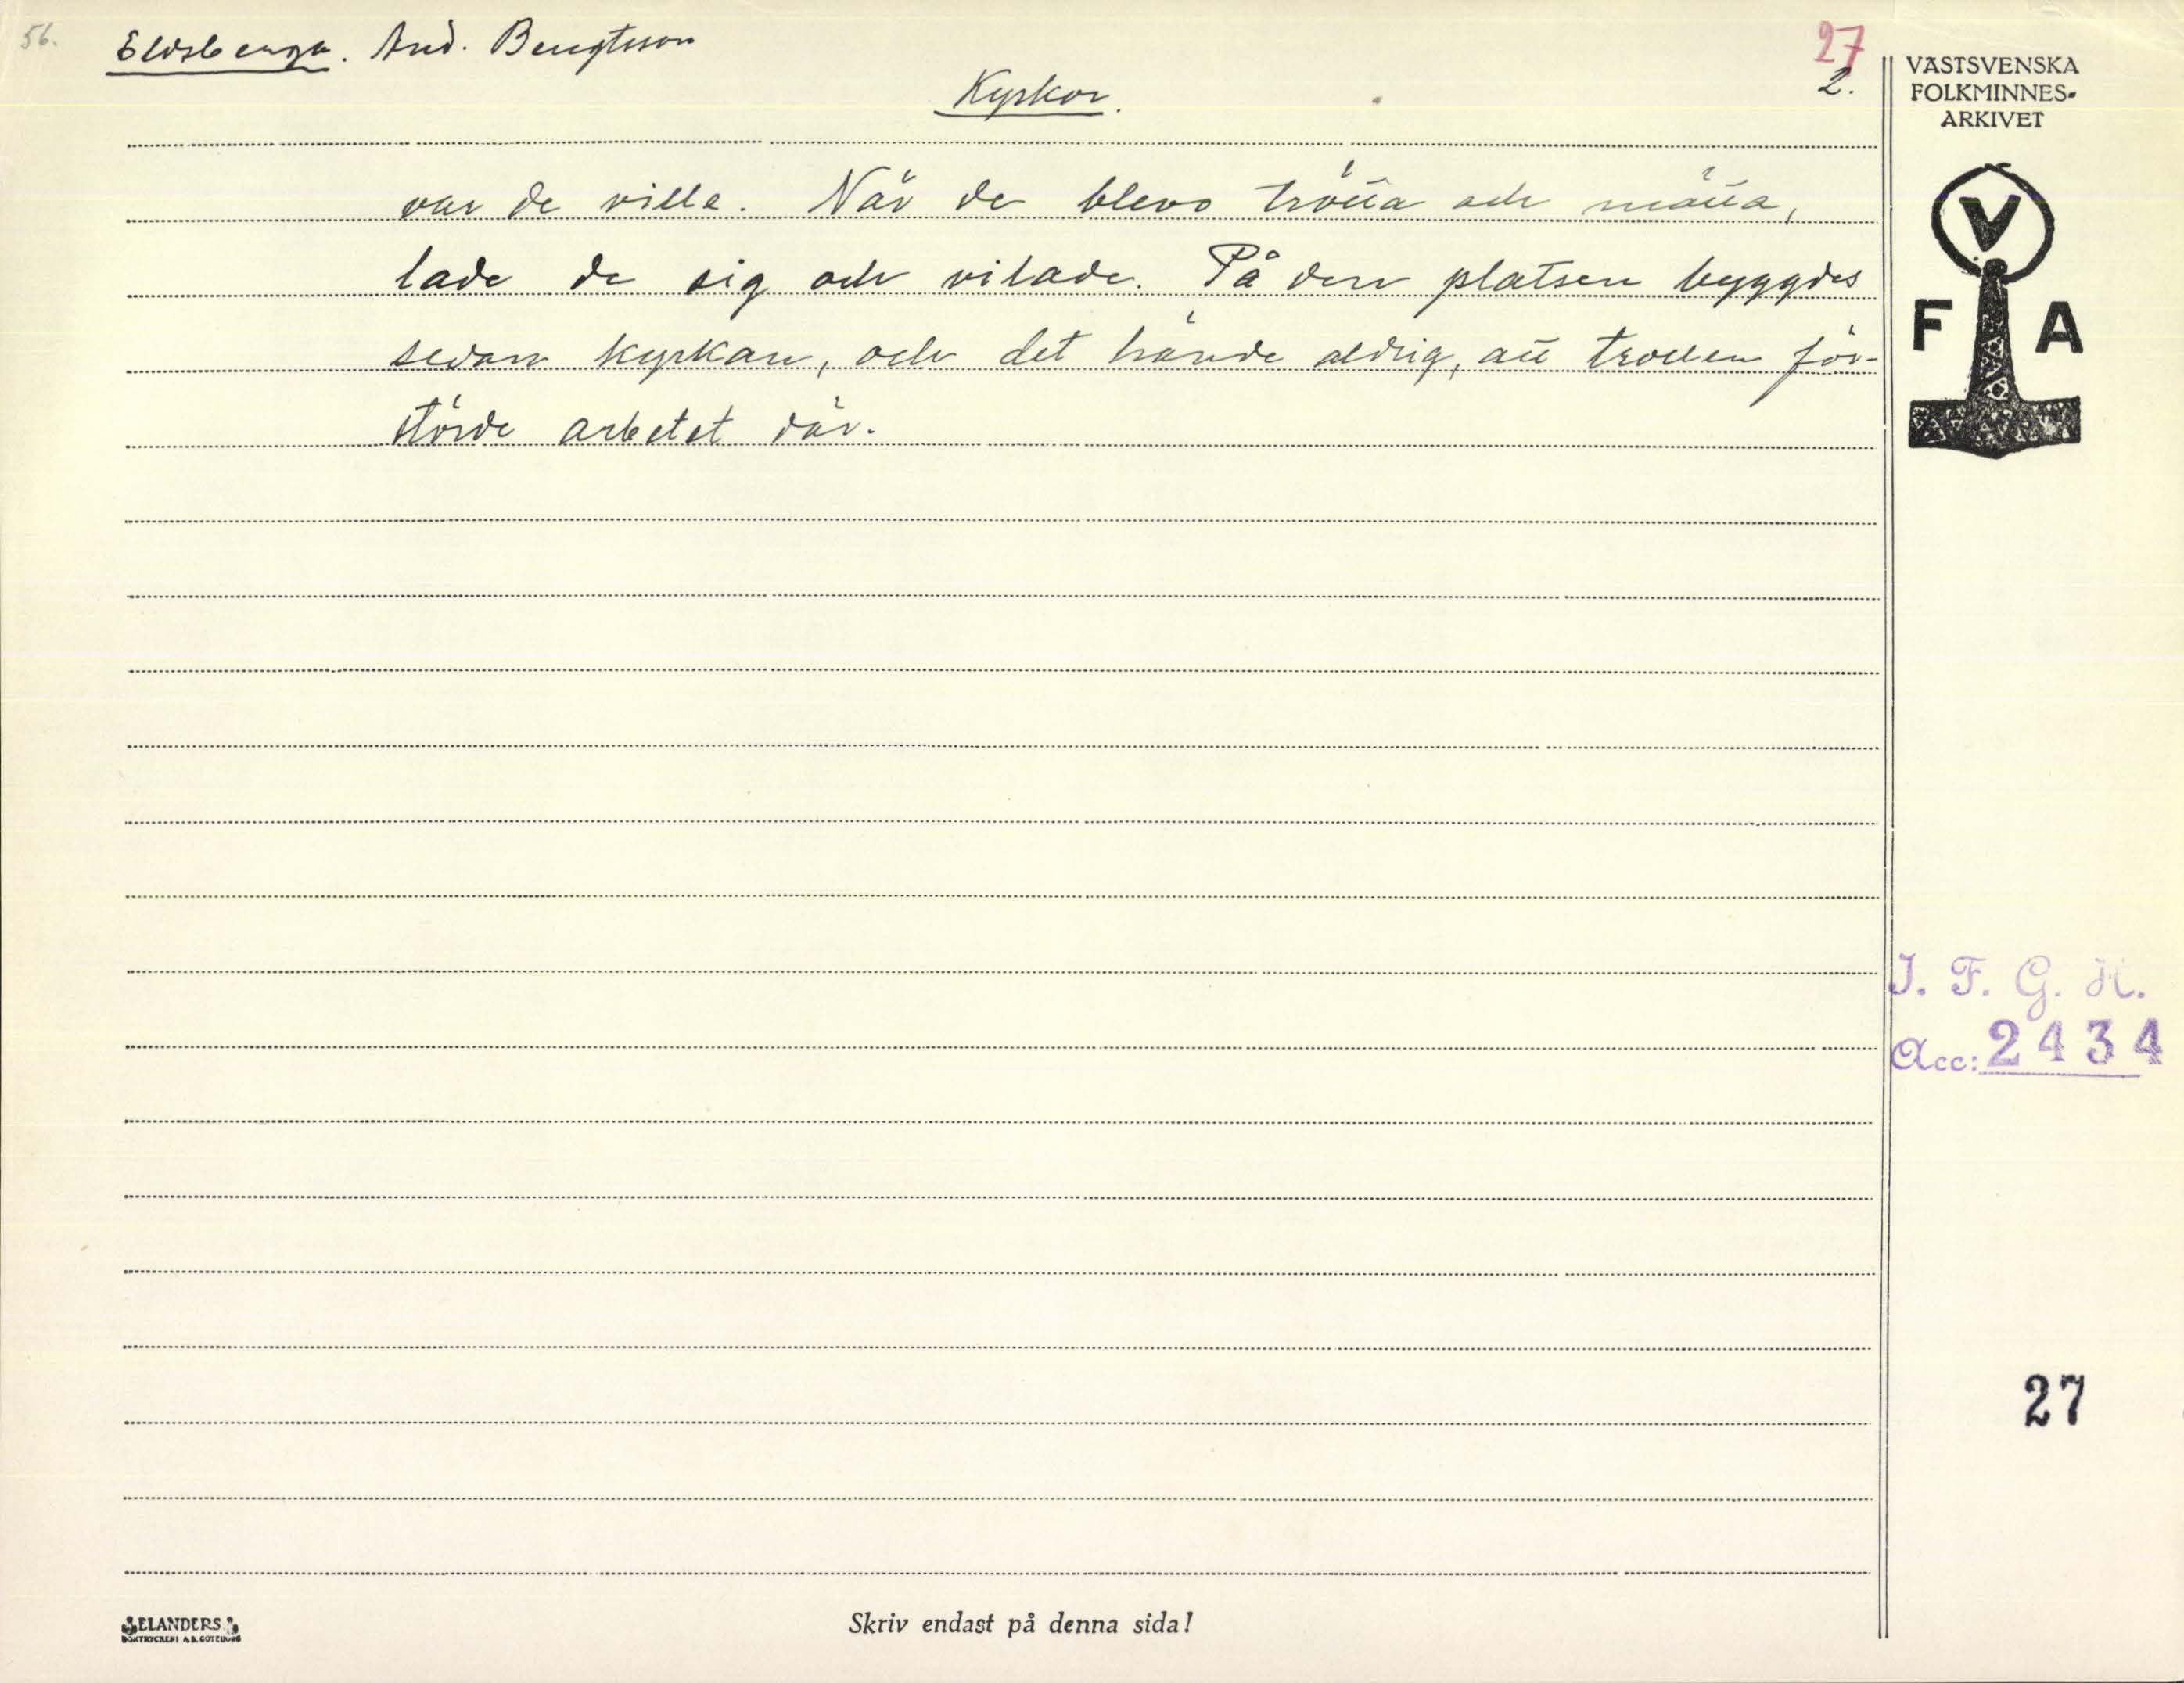 56.
Eldsberga. And. Bengtsson
27
Kyrkor.
2.
VÄSTSVENSKA
FOLKMINNES-
ARKIVET
var de ville. När de blevo trötta och mätta,
lade de sig och vilade. På den platsen byggdes
sedan kyrkan, och det hände aldrig, att trollen för-
störde arbetet där.
V
F A
I. F. G. H.
Acc: 2434
27
ELANDERS
BOKTRYCKERI A.B. GÖTEBORG
Skriv endast på denna sida!